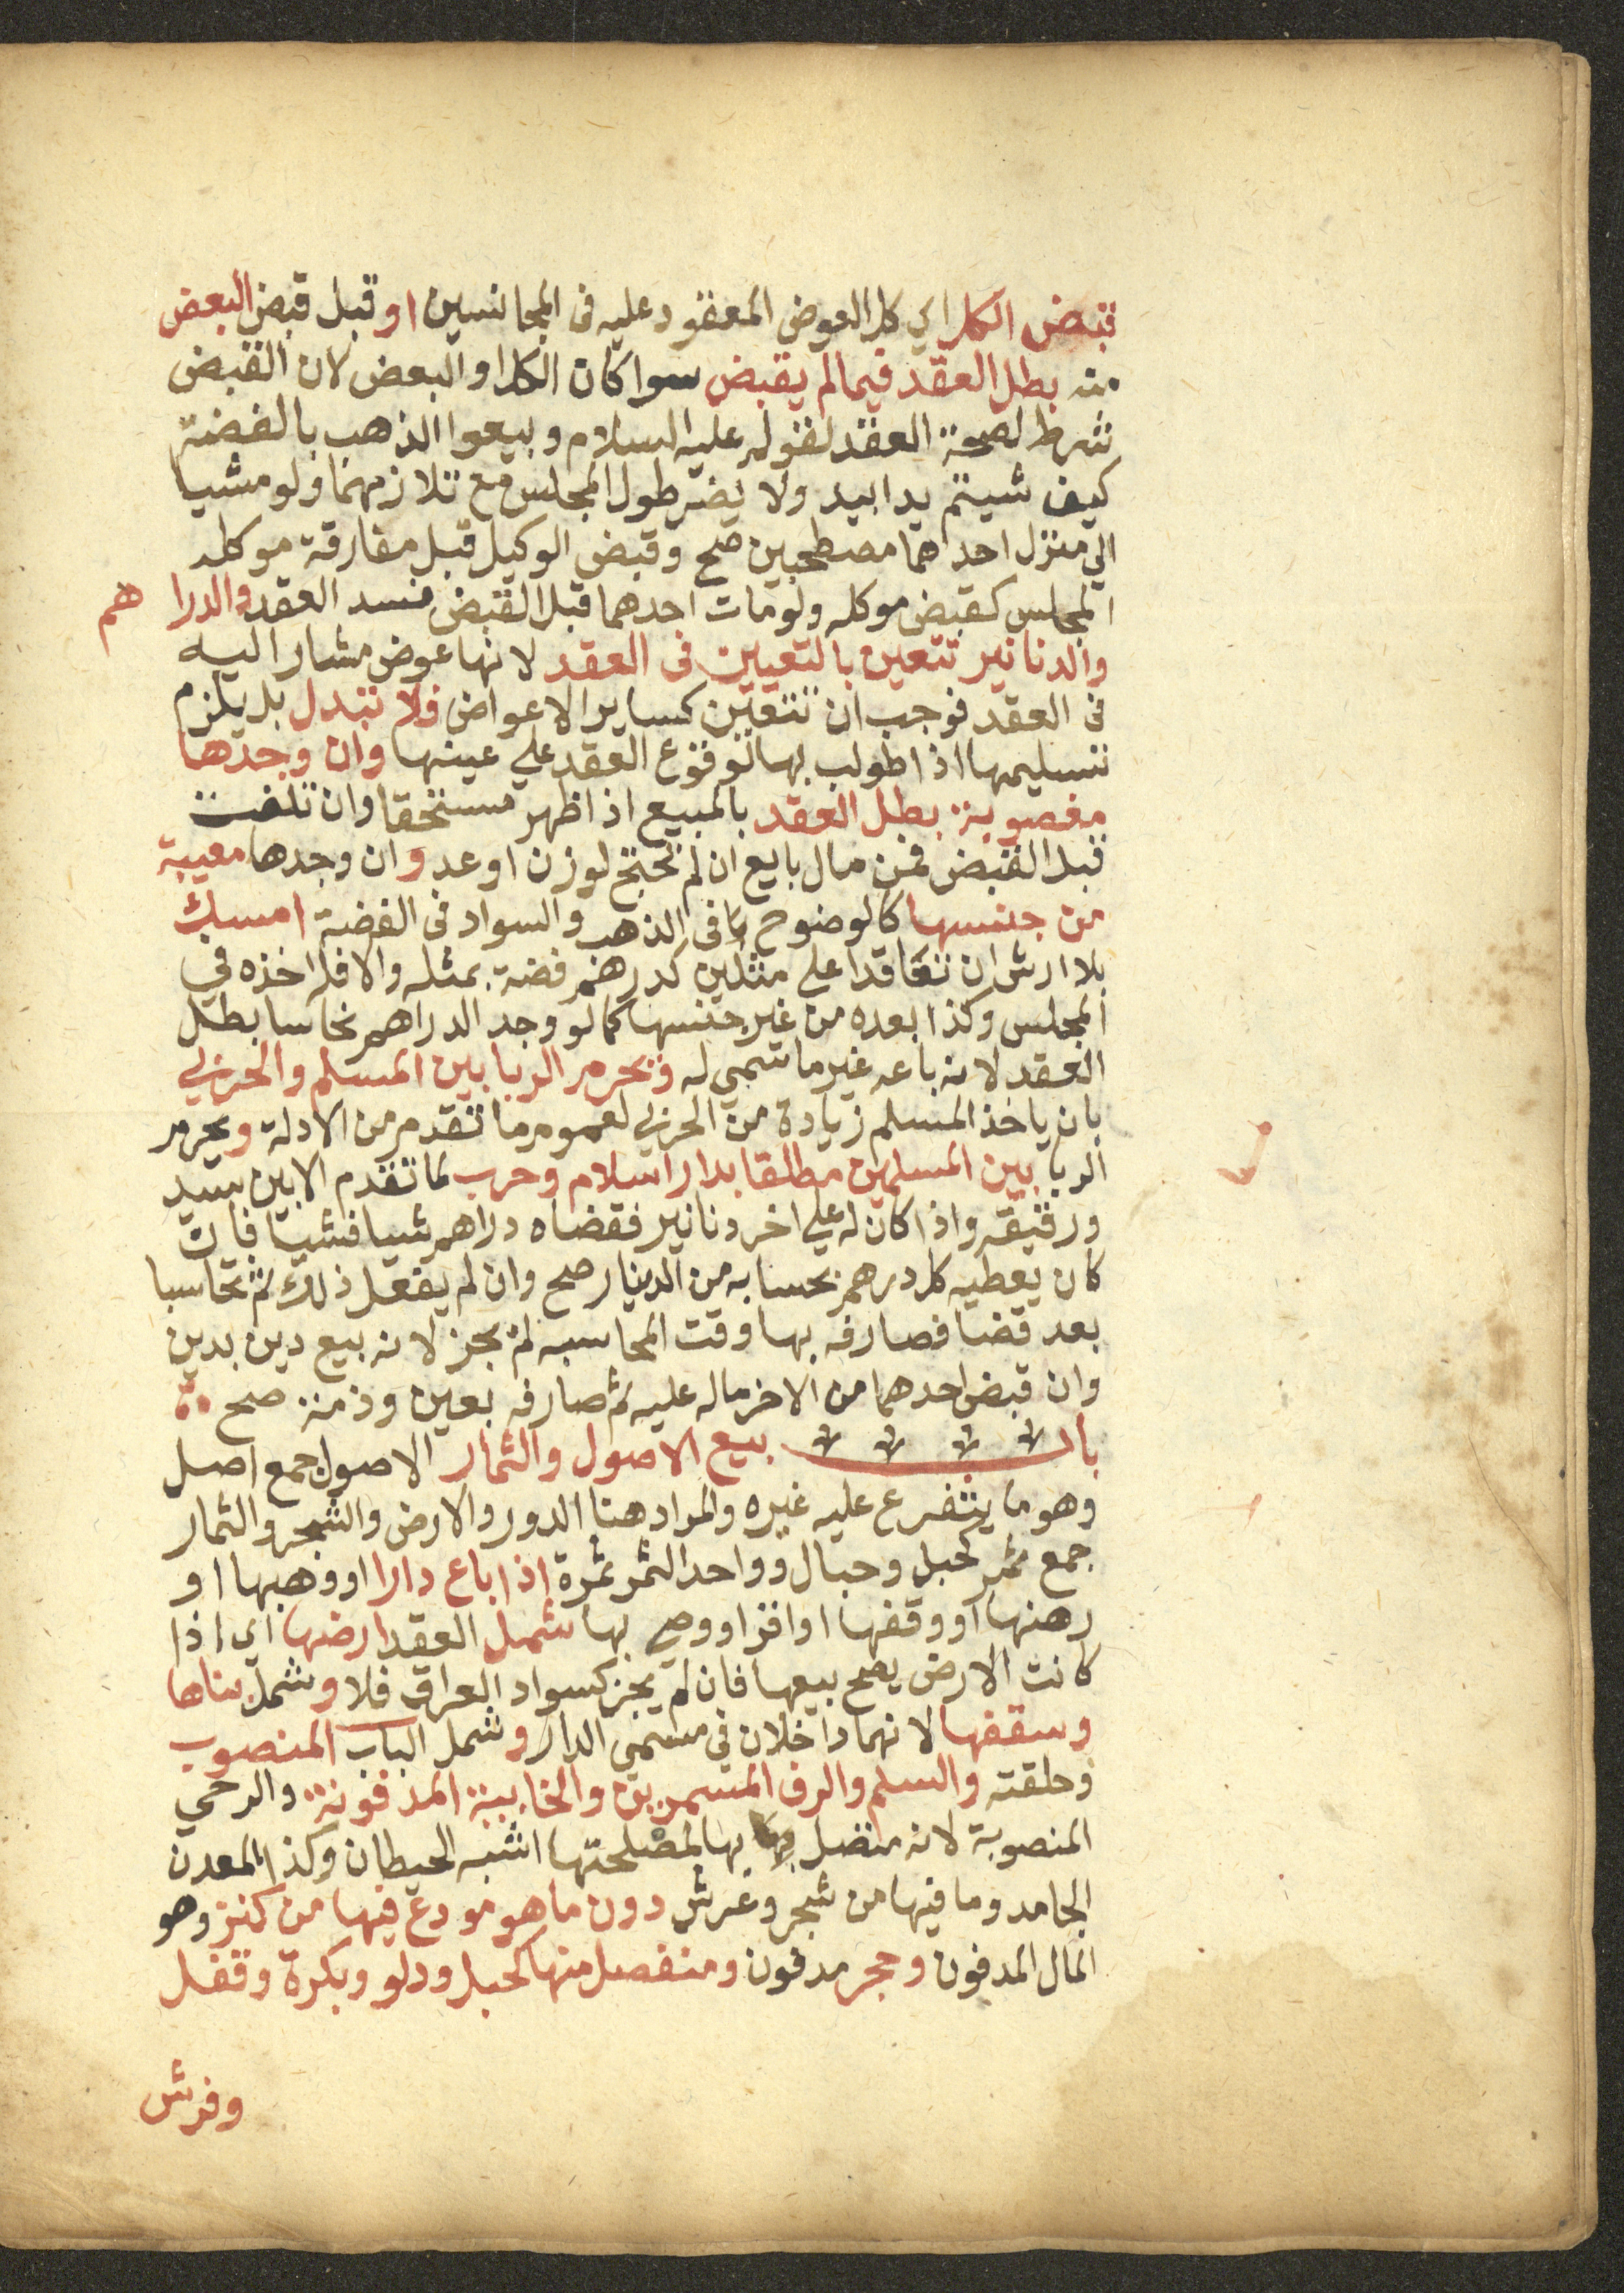 قبض الكل اي كل العوض المعقود عليه فى المجانسين او قبل قبض البعض
منه بطل العقد فيما لم يقبض سوا كان الكل او البعض لان القبض
شرط لصحة العقد لقوله عليه السلام وبيعوا الذهب بالفضة
كيف شيتم يدا بيد ولا يضر طول المجلس مع تلازمهما ولو مشيا
الي منزل احدهما مصطحبين صح وقبض الوكيل قبل مفارقة موكله
المجلس كقبض موكله ولو مات احدهما قبل القبض فسد العقد والدرا هم
والدنانير تتعين بالتعيين فى العقد لانها عوض مشار اليه
فى العقد فوجب ان تتعين كساير الاعواض فلا تبدل بل يلزم
تسليمها اذا طولب بها لوقوع العقد علي عينها وان وجدها
مغصوبة بطل العقد بالمبيع اذا ظهر مستحقا وان تلفت
قبل القبض فمن مال بايع ان لم تحتج لوزن او عد وان وجدها معيبة
من جنسها كالوضوح فى الذهب والسواد فى الفضة امسك
بلا ارش ان تعاقدا علي مثلين كدرهم فضة بمثله والا فله اخذه في
المجلس وكذا بعده من غير جنسها كما لو وجد الدراهم نحاسا بطل
العقد لانه باعه غير ما سمي له ويحرم الربا بين المسلم والحربي
بان ياخذ المسلم زيادة من الحربي لعموم ما تقدم من الادلة ويحرم
الربا بين المسلمين مطلقا بدار اسلام وحرب لما تقدم الا بين سيد
ورقيقه واذا كان له علي اخر دنانير فقضاه دراهم شيا فشيا فان
كان يعطيه كل درهم بحسابه من الدينار صح وان لم يفعل ذلك ثم تحاسبا
بعد قضا فصارفه بها وقت المحاسبه لم يجز لانه بيع دين بدين
وان قبض احدهما من الاخر ماله عليه ثم صارفه بعين وذمة صح
باب بيع الاصول والثمار الاصول جمع اصل
وهو ما يتفرع عليه غيره والمراد هنا الدور والارض والشجر والثمار
جمع ثمر كجبل وجبال وواحد الثمر ثمرة اذا باع دارا او وهبها او
رهنها او وقفها او اقر او وصي بها شمل العقد ارضها اي اذا
كانت الارض يصح بيعها فان لم يجز كسواد العراق فلا وشمل بناها
وسقفها لانهما داخلان في مسمي الدار وشمل الباب المنصوب
وحلقته والسلم والرف المسمرين والخابية المدفونة والرحي
المنصوبة لانه متصل بها لمصلحتها اشبه الحيطان وكذا المعدن
الجامد وما فيها من شجر وعرش دون ما هو مودع فيها من كنز وهو
المال المدفون وحجر مدفون ومنفصل منها كحبل ودلو وبكرة وقفل
وفرش